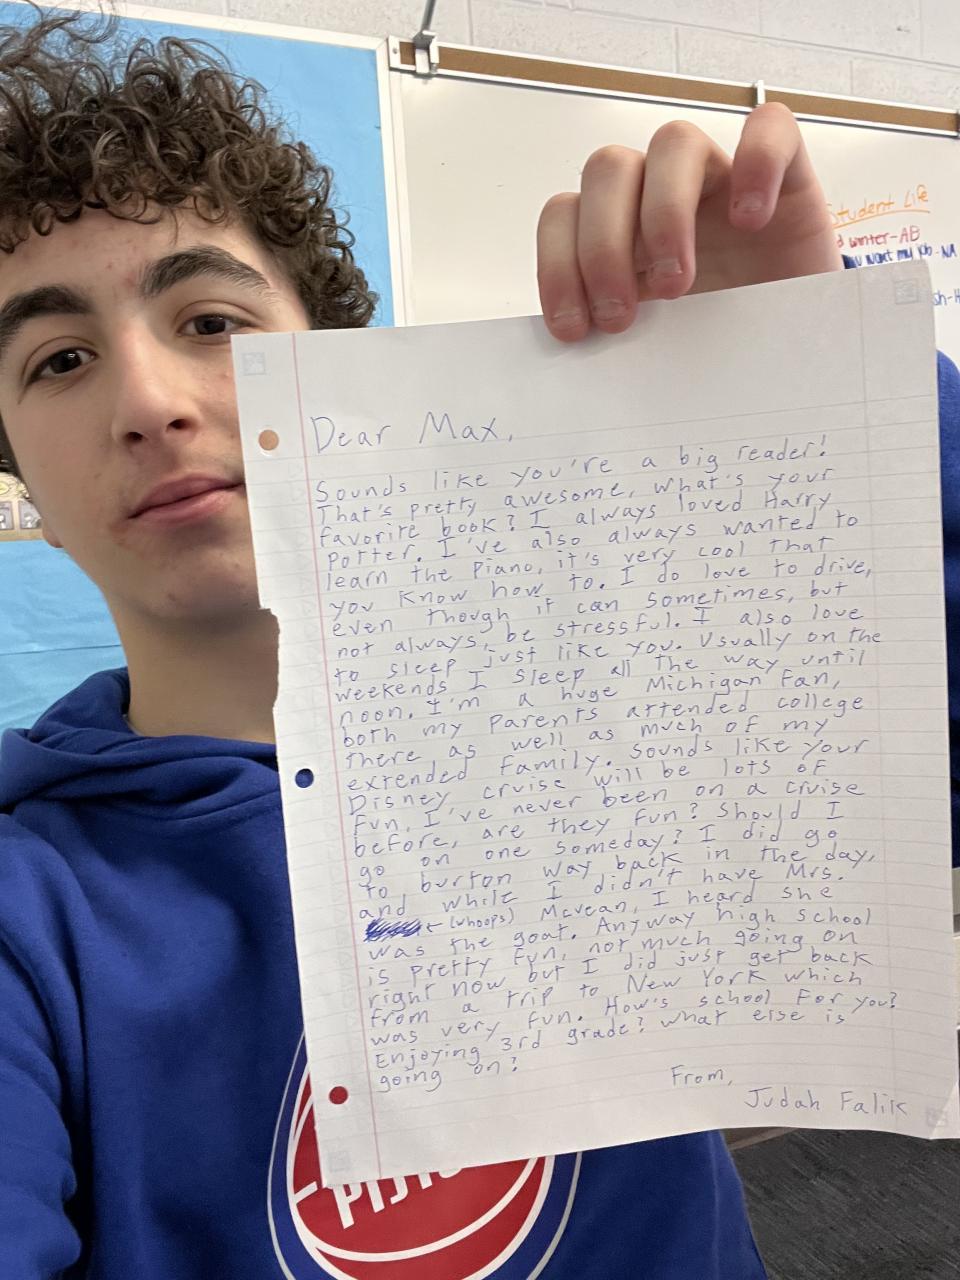 Student Life
d winter-AB
u want my job-NA
sh-H
Dear Max,
Sounds like you're a big reader!
That's pretty awesome, what's your
favorite book? I always loved Harry
Potter. I've also always wanted to
learn the piano, it's very cool that
you know how to. I do love to drive,
even though it can sometimes, but
not always, be stressful. I also love
to sleep just like you. Usually on the
weekends I sleep all the way until
noon. I'm a huge Michigan Fan,
both my parents attended college
there as well as much of my
extended family. Sounds like your
Disney cruise will be lots of
fun. I've never been on a cruise
before, are they fun? Should I
go on one someday? I did go
to burton way back in the day,
and while I didn't have Mrs.
← (whoops) McVean, I heard she
was the goat. Anyway high school
is pretty fun, not much going on
right now but I did just get back
from a trip to New York which
was very fun. How's school for you?
Enjoying 3rd grade? What else is
going on?
From,
Judah Falik
PISTO